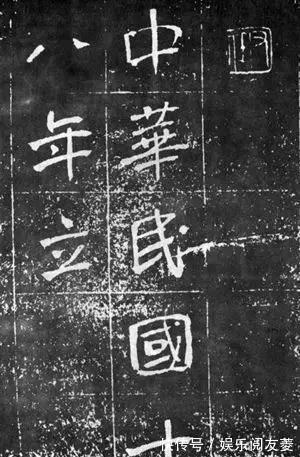 中華民國十
八年立
快传号 / 娱乐阅友菱